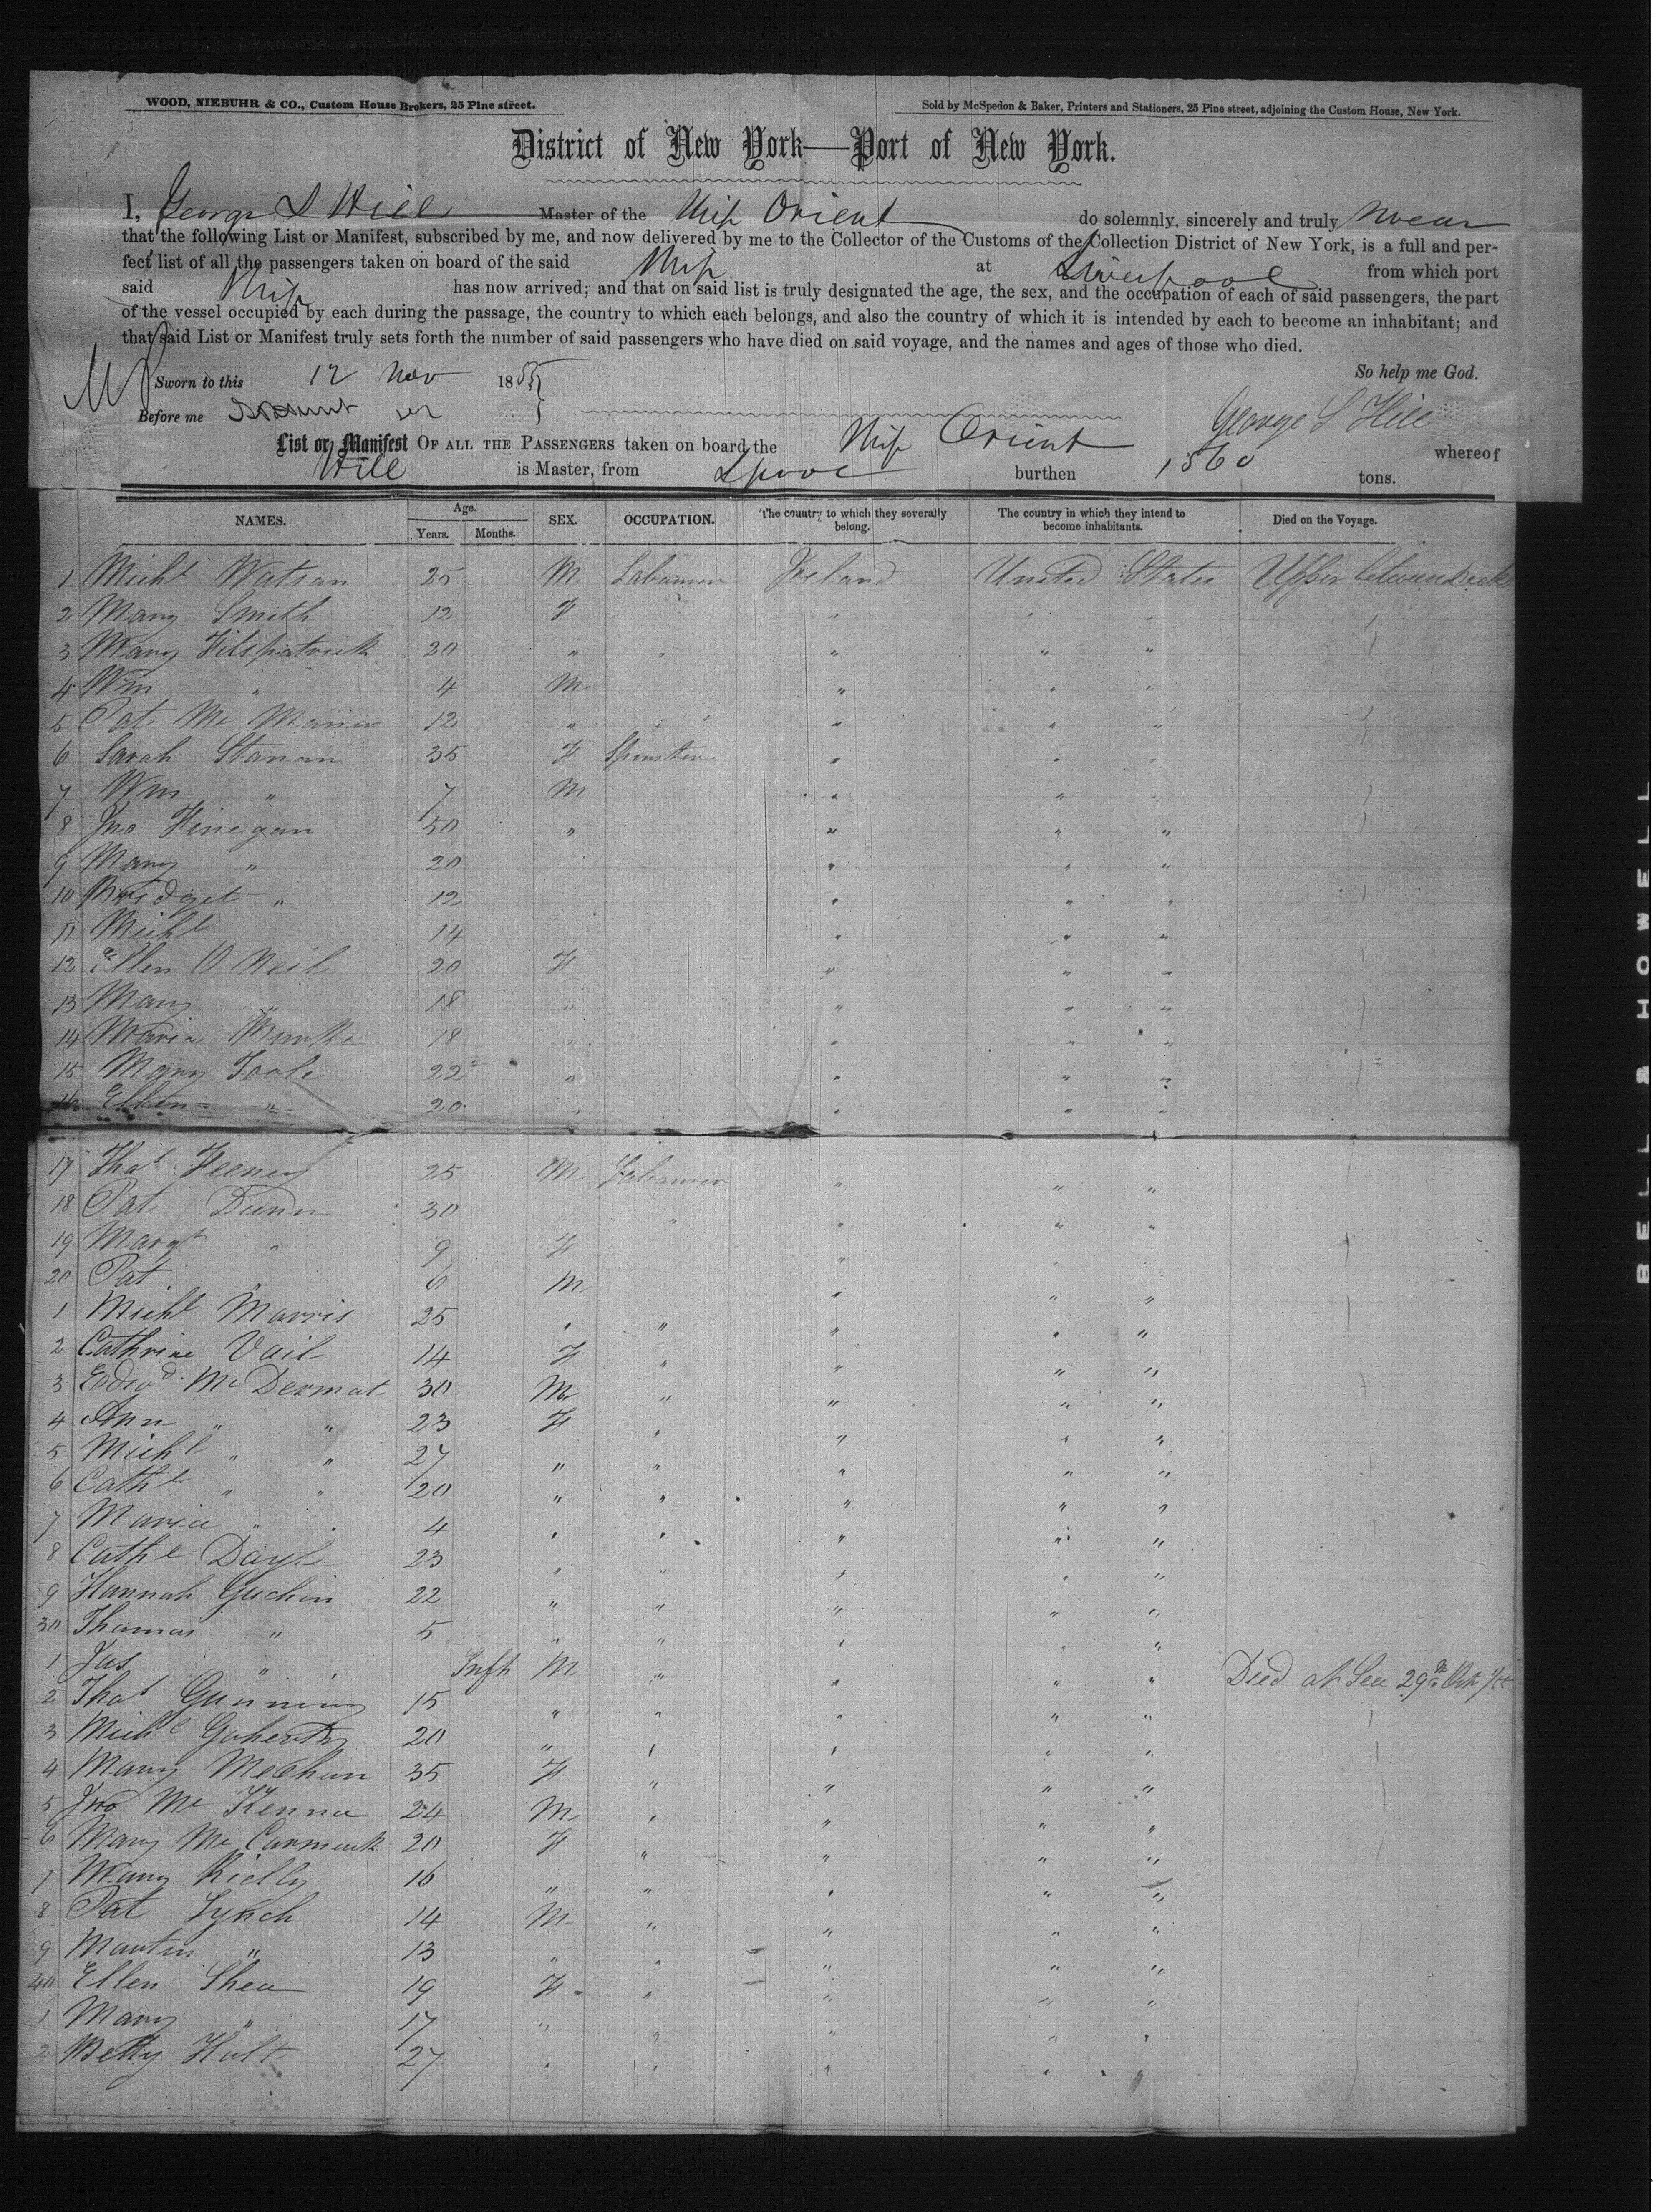 WOOD, NIEBUHR & CO., Custom House Brokers, 25 Pine street.
Sold by McSpedon & Baker, Printers and Stationers, 25 Pine street, adjoining the Custom House, New York.
District of New York—Port of New York.
I, George S Hill Master of the Ship Orient do solemnly, sincerely and truly swear
that the following List or Manifest, subscribed by me, and now delivered by me to the Collector of the Customs of the Collection District of New York, is a full and per-
fect list of all the passengers taken on board of the said Ship at Liverpool from which port
said Ship has now arrived; and that on said list is truly designated the age, the sex, and the occupation of each of said passengers, the part
of the vessel occupied by each during the passage, the country to which each belongs, and also the country of which it is intended by each to become an inhabitant; and
that said List or Manifest truly sets forth the number of said passengers who have died on said voyage, and the names and ages of those who died.
Sworn to this 12 Nov 1855 So help me God.
Before me George S Hill
List or Manifest OF ALL THE PASSENGERS taken on board the Ship Orient whereof
Hill is Master, from Lpool burthen 1560 tons.
NAMES. Age. Years. Months. SEX. OCCUPATION. The country to which they severally belong. The country in which they intend to become inhabitants. Died on the Voyage.
1 Michl Watson 25 M Labourer Ireland United States Upper between Decks
2 Mary Smith 12 F " " "
3 Mary Fitspatrick 20 " " " " "
4 Wm " 4 M " " "
5 Pat Mc 12 " " " "
6 Sarah 35 F Spinster " " "
7 Wm " 7 M " " "
8 Jno Finegan 50 " " " "
9 Mary " 20 " " "
10 Bridget " 12 " " "
11 Michl 14 " " "
12 Ellen O Neil 20 F " " "
13 Mary " 18 " " " "
14 Maria Burke 18 " " " "
15 Mary Toole 22 " " " "
16 Ellen " 20 " " " "
17 Thos Feeney 25 M Labourer " " "
18 Pat Dunn 30 " " " "
19 Margt " 9 F " " "
20 Pat " 6 M " " "
1 Michl Morris 25 " " " " "
2 Cathrine Vail 14 F " " " "
3 Edwd Mc Dermot 30 M " " " "
4 Ann " " 23 F " " " "
5 Michl " " 27 " " " " "
6 Cathe " " 20 " " " " "
7 Maria " " 4 " " " " "
8 Cathe Doyle 23 " " " " "
9 Hannah 22 " " " " "
30 Thomas " 5 " " " " "
1 Jas " Inft M " " " " Died at Sea 29th Oct /55
2 Thos Gunning 15 " " " " "
3 Michl 20 " " " " "
4 Mary Meehan 35 F " " " "
5 Jno Mc Kenna 24 M " " " "
6 Mary Mc Cormack 20 F " " " "
7 Mary Rielly 16 " " " " "
8 Pat Lynch 14 M " " " "
9 Martin " 13 " " " " "
40 Ellen Shea 19 F " " " "
1 Mary " 17 " " " " "
2 Betty Holt 27 " " " " "
BELL & HOWELL